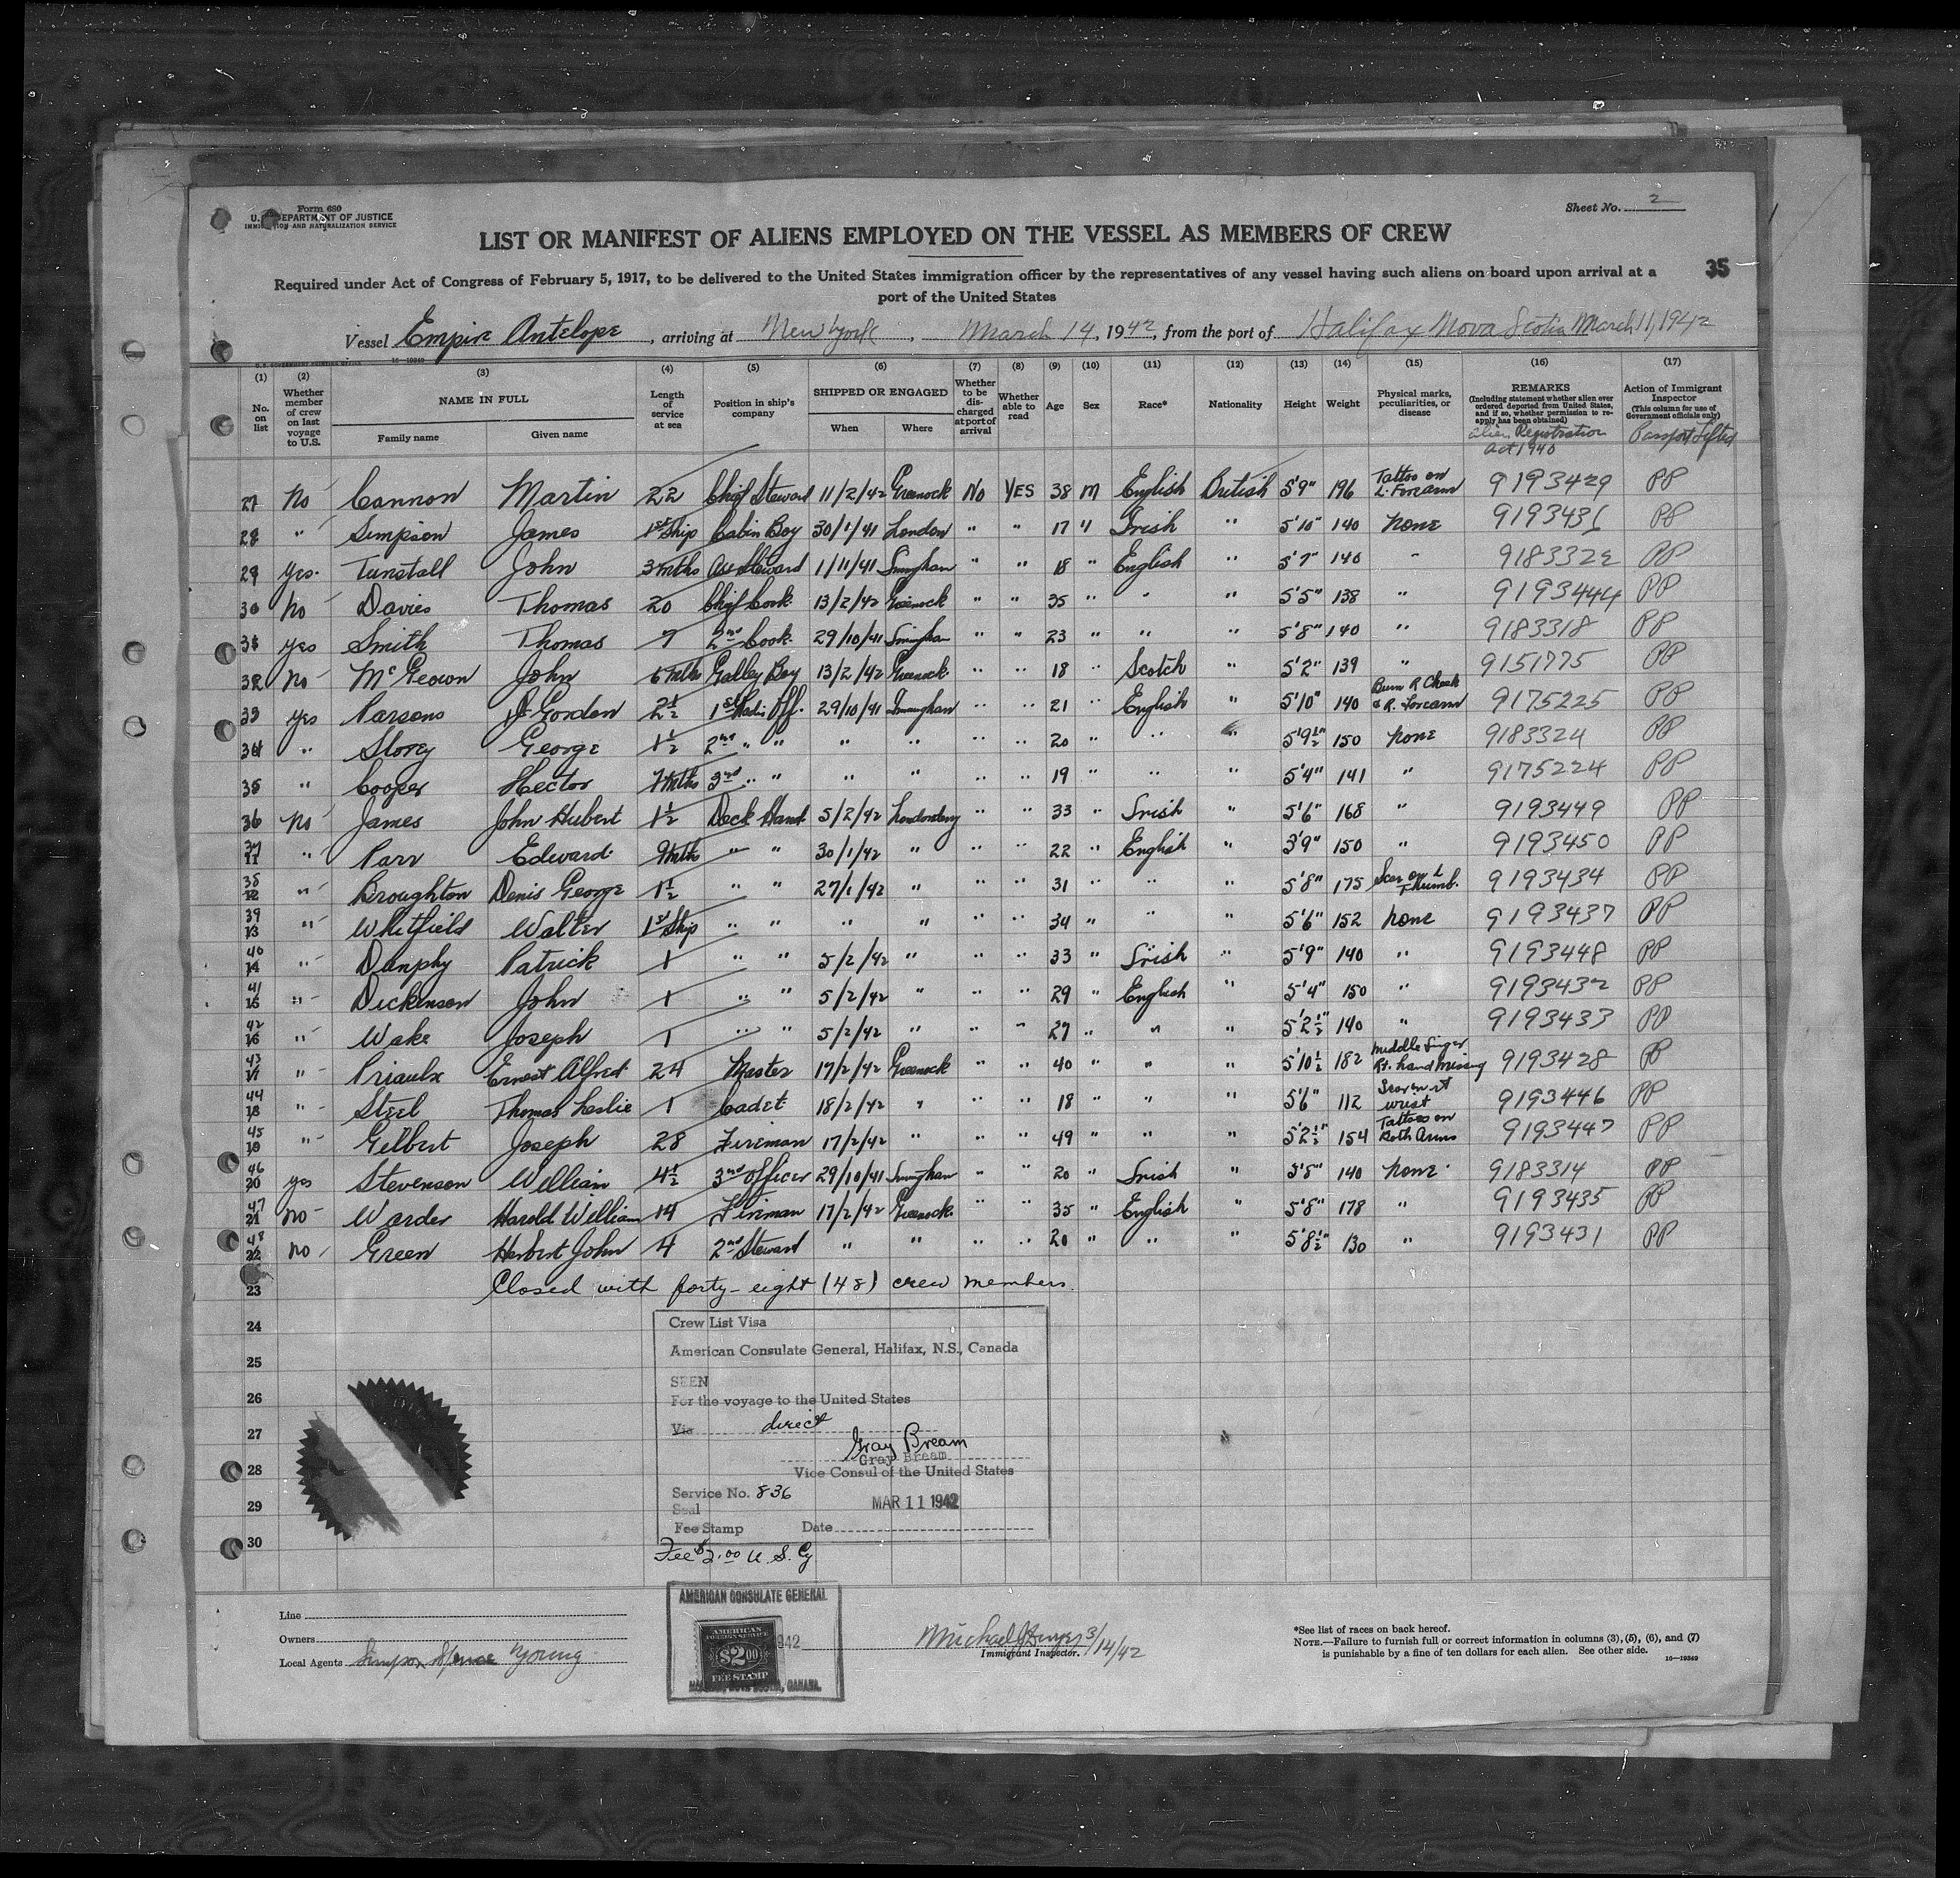 Form 680
U. S. DEPARTMENT OF JUSTICE
IMMIGRATION AND NATURALIZATION SERVICE
Sheet No. 2
LIST OR MANIFEST OF ALIENS EMPLOYED ON THE VESSEL AS MEMBERS OF CREW
35
Required under Act of Congress of February 5, 1917, to be delivered to the United States immigration officer by the representatives of any vessel having such aliens on board upon arrival at a
port of the United States
Vessel Empire Antelope, arriving at New York, March 14, 1942, from the port of Halifax Nova Scotia March 11, 1942
16—19349
U. S. GOVERNMENT PRINTING OFFICE
(1) (2) (3) (4) (5) (6) (7) (8) (9) (10) (11) (12) (13) (14) (15) (16) (17)
No. on list
Whether member of crew on last voyage to U.S.
NAME IN FULL
Family name Given name
Length of service at sea
Position in ship's company
SHIPPED OR ENGAGED
When Where
Whether to be discharged at port of arrival
Whether able to read
Age
Sex
Race*
Nationality
Height
Weight
Physical marks, peculiarities, or disease
REMARKS
(Including statement whether alien ever ordered deported from United States, and if so, whether permission to reapply has been obtained)
Alien Registration Act 1940
Action of Immigrant Inspector
(This column for use of Government officials only)
Passport Lifted
27 No Cannon Martin 22 Chief Steward 11/2/42 Greenock No YES 38 M English British 5'9" 196 Tattoo on L. Forearm 9193429 PP
28 " Simpson James 1st Ship Cabin Boy 30/1/41 London " " 17 " Irish " 5'10" 140 None 9193436 PP
29 Yes Tunstall John 3 Mths Ass Steward 1/11/41 " " 18 " English " 5'7" 140 " 9183322 PP
30 No Davies Thomas 20 Chief Cook 13/2/42 Greenock " " 35 " " " 5'5" 138 " 9193444 PP
31 Yes Smith Thomas 7 2nd Cook 29/10/41 " " 23 " " " 5'8" 140 " 9183318 PP
32 No McGeown John 6 Mths Galley Boy 13/2/42 Greenock " " 18 " Scotch " 5'2" 139 " 9151775 PP
33 Yes Parsons Gordon 2½ 1st Radio Off. 29/10/41 " " 21 " English " 5'10" 140 Burn R Cheek & R. Forearm 9175225 PP
34 " Storey George 1½ 2nd " " " " " " 20 " " " 5'9½" 150 None 9183324 PP
35 " Cooper Hector 7 Mths 3rd " " " " " " 19 " " " 5'4" 141 " 9175224 PP
36 No James John Hubert 1½ Deck Hand 5/2/42 Londonderry " " 33 " Irish " 5'6" 168 " 9193449 PP
37 11 " Parr Edward 9 Mth " " 30/1/42 " " " 22 " English " 5'9" 150 " 9193450 PP
38 12 " Broughton Denis George 1½ " " 27/1/42 " " " 31 " " " 5'8" 175 Scar on L Thumb. 9193434 PP
39 13 " Whitfield Walter 1st Ship " " " " " " 34 " " " 5'6" 152 None 9193437 PP
40 14 " Dunphy Patrick 1 " " 5/2/42 " " " 33 " Irish " 5'9" 140 " 9193448 PP
41 15 " Dickinson John 1 " " 5/2/42 " " " 29 " English " 5'4" 150 " 9193432 PP
42 16 " Wake Joseph 1 " " 5/2/42 " " " 27 " " " 5'2½" 140 " 9193433 PP
43 17 " Priaulx Ernest Alfred 24 Master 17/2/42 Greenock " " 40 " " " 5'10½ 182 Middle finger Rt. hand missing 9193428 PP
44 18 " Steel Thomas Leslie 1 Cadet 18/2/42 " " " 18 " " " 5'6" 112 Scar on rt wrist 9193446 PP
45 19 " Gilbert Joseph 28 Fireman 17/2/42 " " " 49 " " " 5'2½" 154 Tattoos on Both Arms 9193447 PP
46 20 Yes Stevenson William 4½ 3rd Officer 29/10/41 " " 20 " Irish " 5'8" 140 None 9183314 PP
47 21 No Warder Harold William 14 Fireman 17/2/42 Greenock " " 35 " English " 5'8" 178 " 9193435 PP
48 22 No Green Herbert John 4 2nd Steward " " " " 20 " " " 5'8½" 130 " 9193431 PP
23 Closed with forty-eight (48) crew members.
24
25
26
27
28
29
30
Crew List Visa
American Consulate General, Halifax, N.S., Canada
SEEN
For the voyage to the United States
Via direct
Gray Bream
Gray Bream
Vice Consul of the United States
Service No. 836
MAR 11 1942
Seal
Fee Stamp Date
Fee $2.00 U. S. Cy
AMERICAN CONSULATE GENERAL
AMERICAN
FOREIGN SERVICE
$2.00
FEE STAMP
942
CANADA.
Line
Owners
Local Agents Simpson Spence Young
Michael J 3/14/42
Immigrant Inspector.
*See list of races on back hereof.
NOTE.—Failure to furnish full or correct information in columns (3), (5), (6), and (7)
is punishable by a fine of ten dollars for each alien. See other side.
16—19349